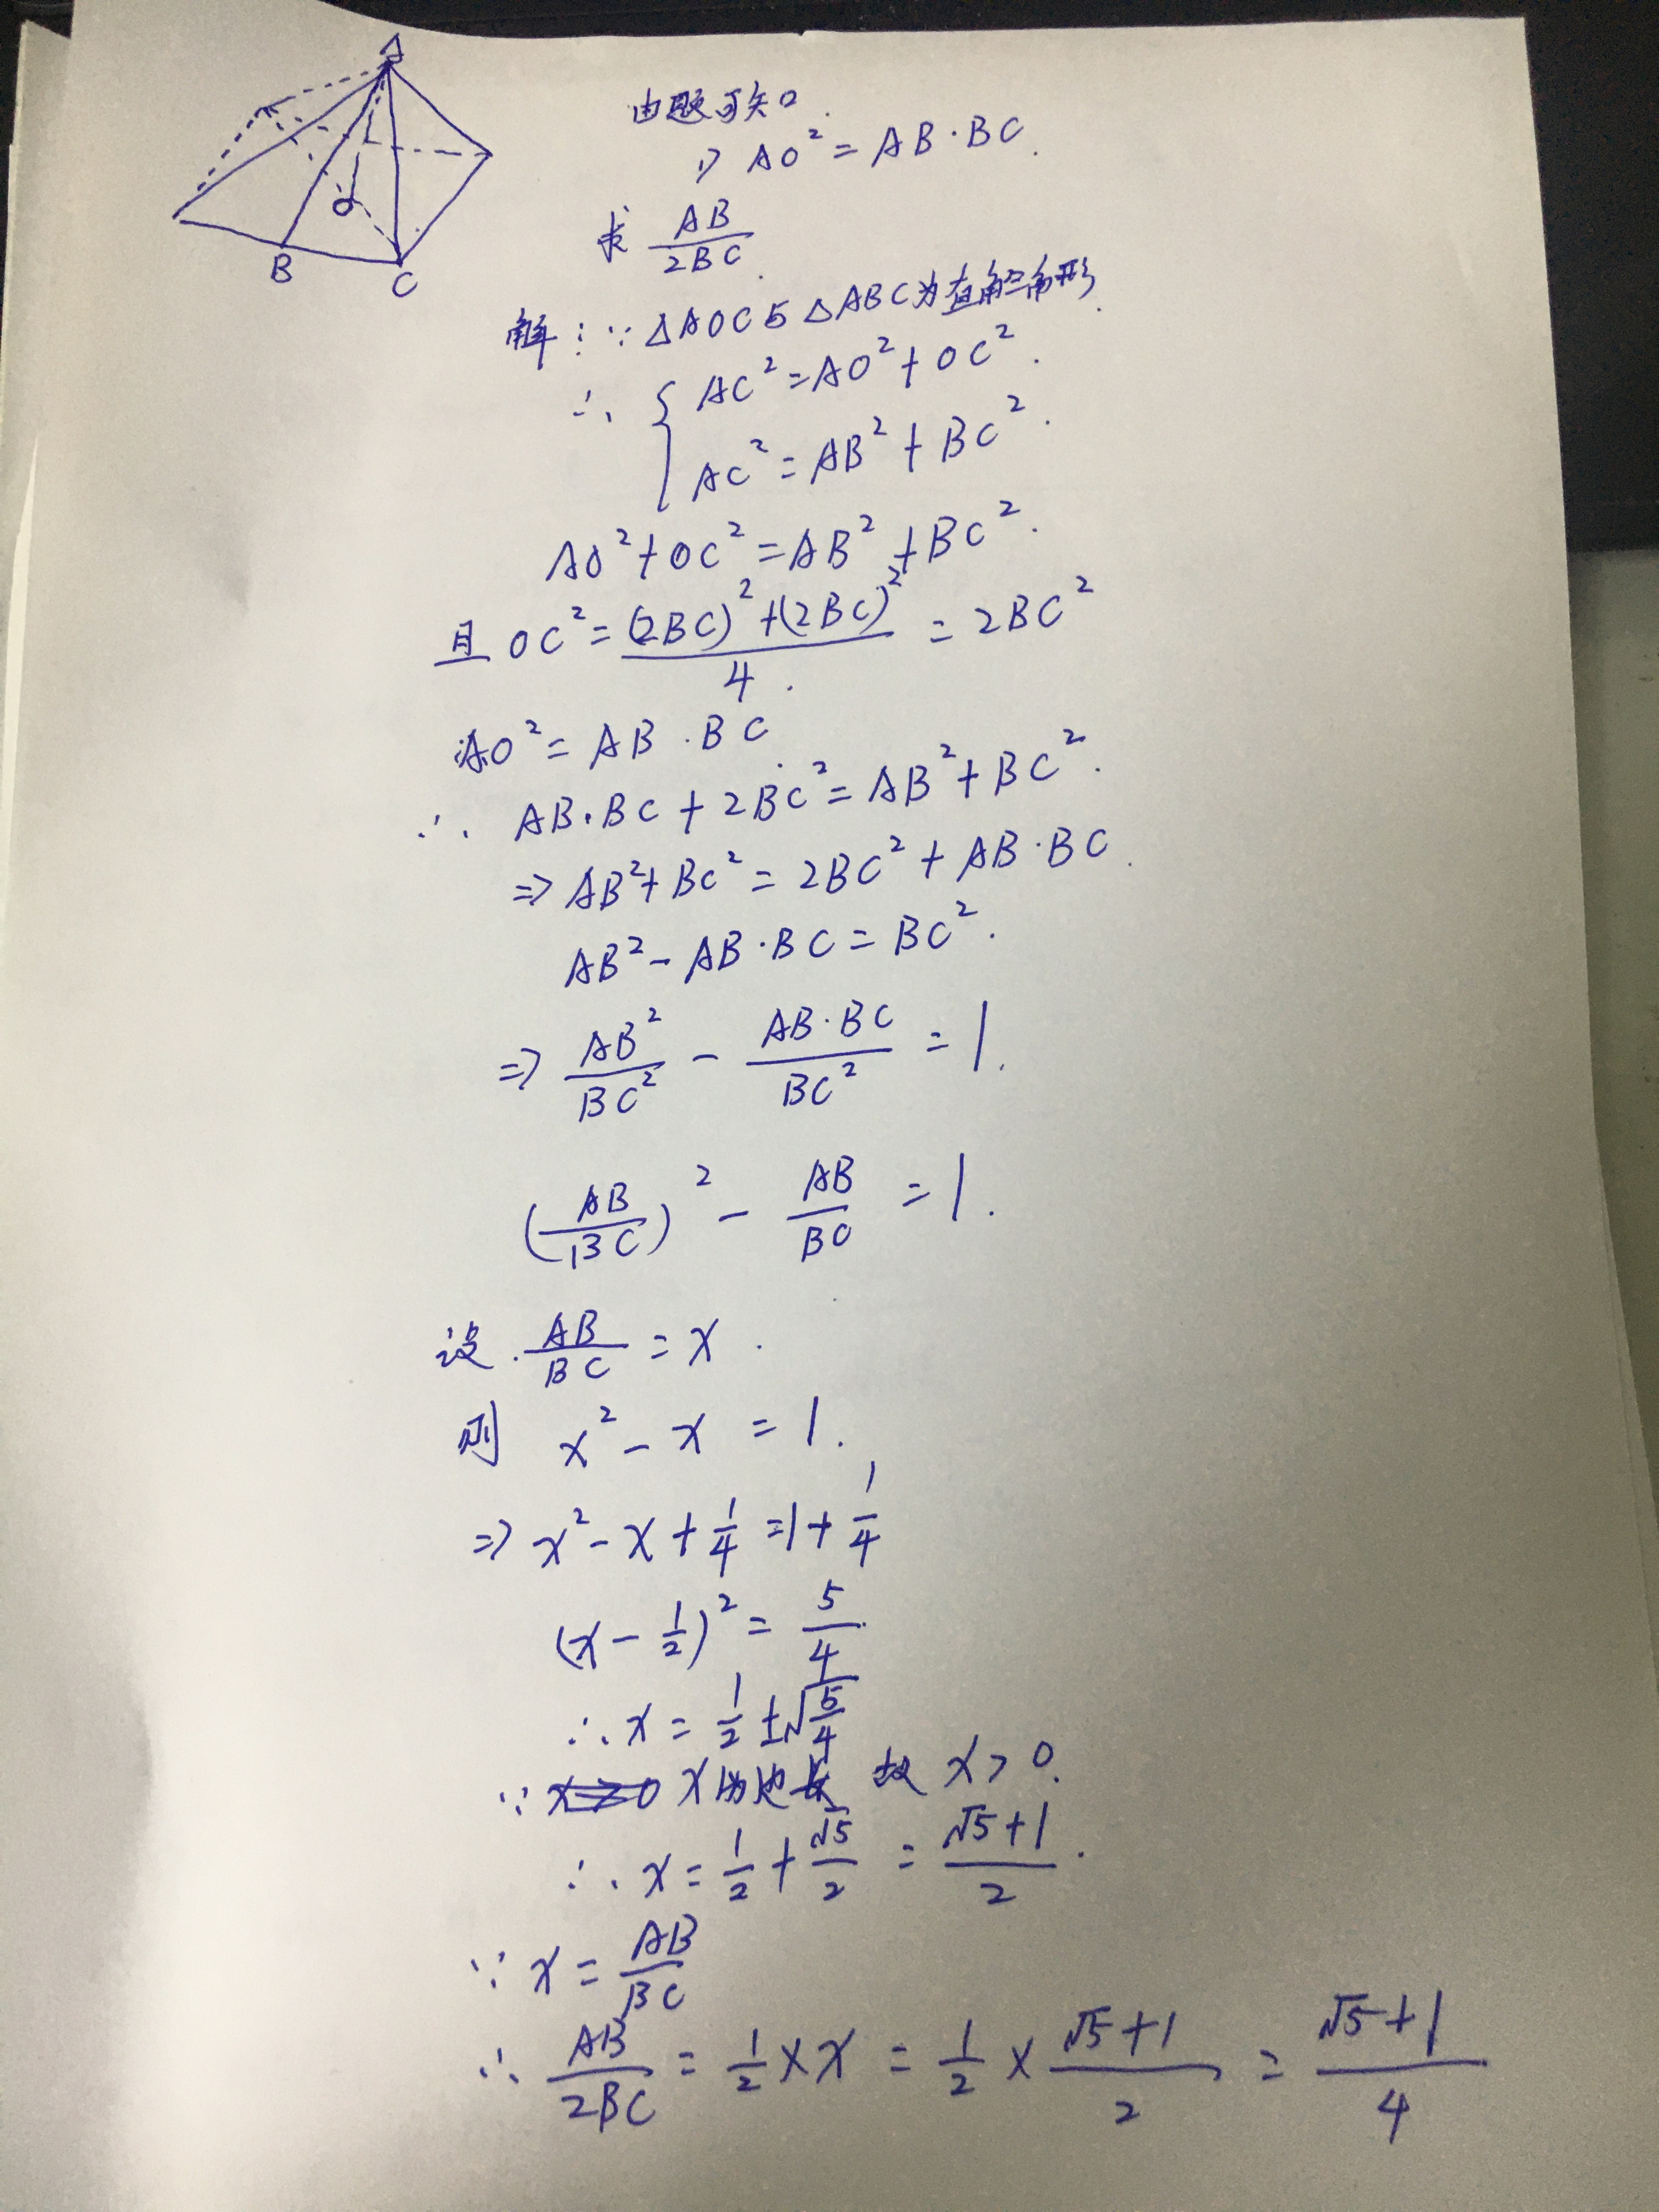 A
O
B
C
由题可知
1) AO² = AB·BC.
求 AB/2BC.
解: ∵ △AOC与△ABC为直角三角形.
∴ { AC² = AO² + OC².
AC² = AB² + BC².
AO² + OC² = AB² + BC².
且 OC² = ((2BC)² + (2BC)²)/4. = 2BC²
AO² = AB·BC
∴ AB·BC + 2BC² = AB² + BC².
⇒ AB² + BC² = 2BC² + AB·BC.
AB² - AB·BC = BC².
⇒ AB²/BC² - AB·BC/BC² = 1.
(AB/BC)² - AB/BC = 1.
设. AB/BC = x.
则 x² - x = 1.
⇒ x² - x + 1/4 = 1 + 1/4
(x - 1/2)² = 5/4.
∴ x = 1/2 ± √(5/4)
∵ x为边长 故 x > 0.
∴ x = 1/2 + √5/2 = (√5+1)/2.
∵ x = AB/BC
∴ AB/2BC = 1/2 × x = 1/2 × (√5+1)/2 = (√5+1)/4